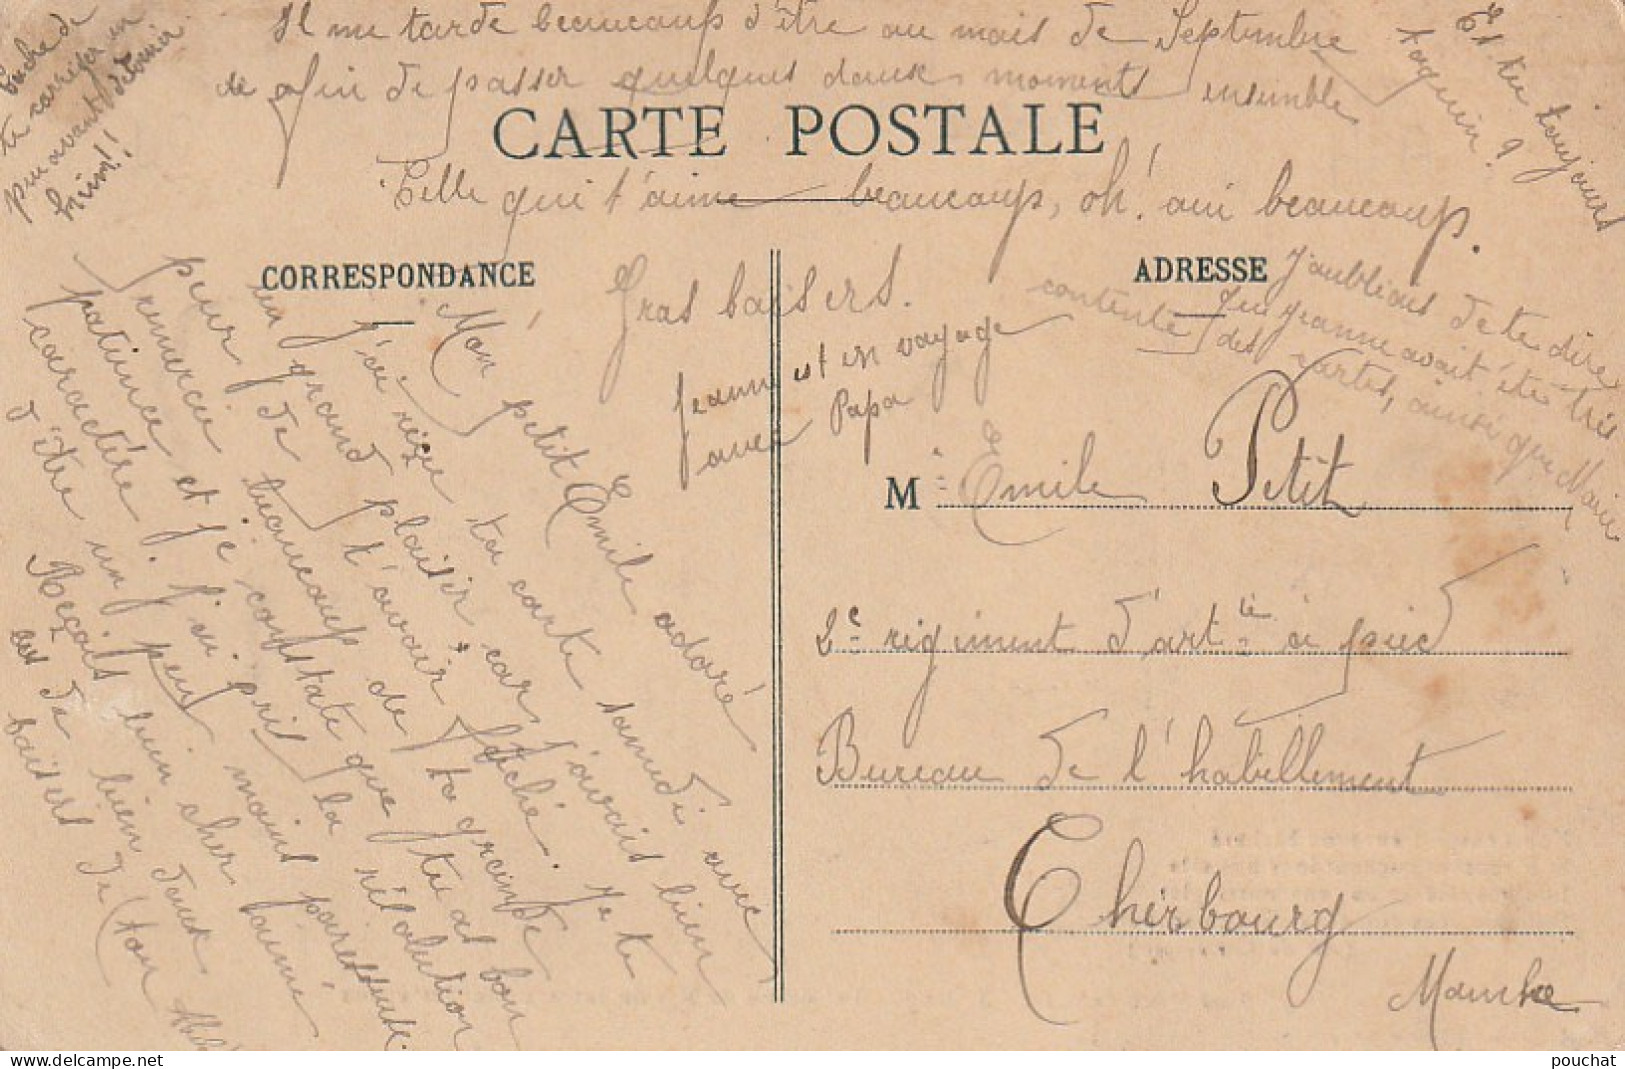 Il me tarde beaucoup d'être au mois de Septembre
afin de passer quelques doux moments ensemble
Celle qui t'aime beaucoup, oh! oui beaucoup.
Gros baisers.
Es-tu toujours
taquin?
Tâche de
te corriger un
peu avant de venir
hein!!
CARTE POSTALE
CORRESPONDANCE
Mon petit Emile adoré
J'ai reçue ta carte samedi avec
un grand plaisir car j'avais bien
peur de t'avoir fâché. Je te
remercie beaucoup de ta grande
patience et je constate que tu as bon
caractère. J'ai pris la résolution
d'être un peu moins paresseuse.
Reçois bien cher aimé
de bien doux
baisers de ton
Jeanne est en voyage
avec Papa
ADRESSE
J'oubliais de te dire
que Jeanne avait été très
contente des cartes, ainsi que Marie
M Emile Petit
2e régiment d'artie à pied
Bureau de l'habillement
Cherbourg
Manche
www.delcampe.net
pouchat